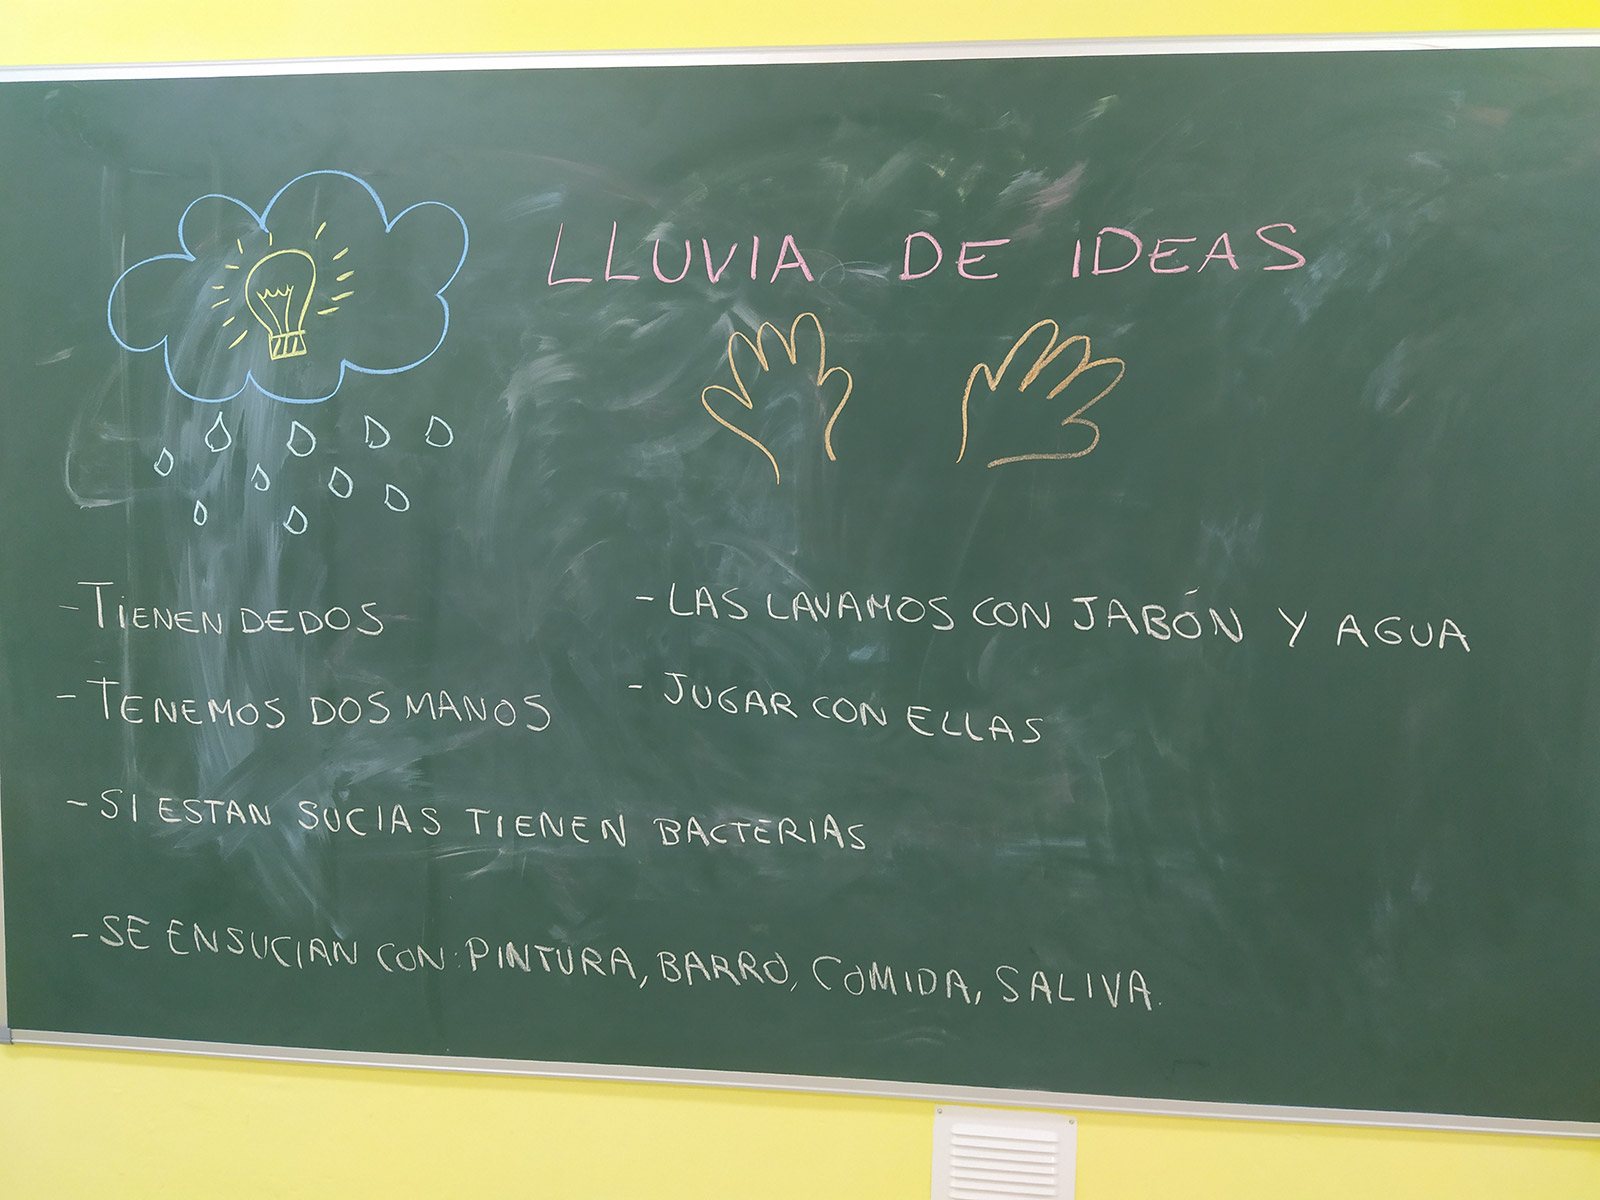 LLUVIA DE IDEAS
- TIENEN DEDOS
- TENEMOS DOS MANOS
- SI ESTAN SUCIAS TIENEN BACTERIAS
- SE ENSUCIAN CON: PINTURA, BARRO, COMIDA, SALIVA.
- LAS LAVAMOS CON JABÓN Y AGUA
- JUGAR CON ELLAS